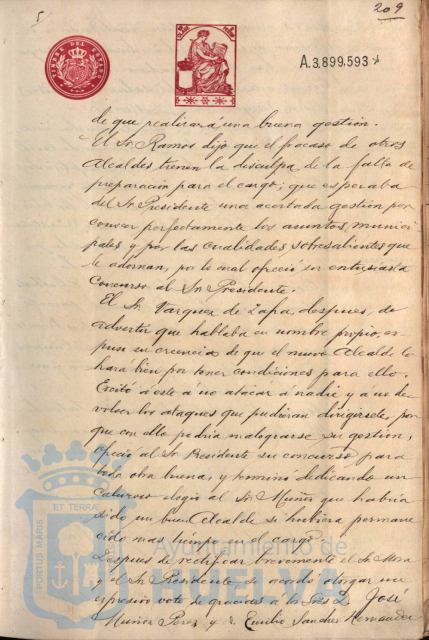 5
209
TIMBRE DEL ESTADO
A.3.899.593
de que realizará una buena gestión.
El Sr. Ramos dijo que el fracaso de otros
Alcaldes tienen la disculpa de la falta de
preparación para el cargo; que esperaba
del Sr. Presidente una acertada gestión por
conocer perfectamente los asuntos munici
pales y por las cualidades sobresalientes que
le adornan, por lo cual ofreció su entusiasta
concurso al Sr. Presidente.
El Sr. Vazquez de Zafra, despues, de
advertir que hablaba en nombre propio, ex-
puso su creencia de que el nuevo Alcalde lo
hará bien por tener condiciones para ello.
Excitó á este á no atacar á nadie y á no de-
volver los ataques que pudieran dirigirsele, por
que con ello podría malograrse su gestión,
ofreció al Sr. Presidente su concurso para
toda obra buena, y terminó dedicando un
caluroso elogio al Sr. Muñoz que habría
sido un buen Alcalde si hubiera permane
cido mas tiempo en el cargo.
Despues de rectificar brevemente el Sr. Mora
y el Sr. Presidente, se acordó otorgar un
expresivo voto de gracias á los Sres. D. José
Muñoz Perez y D. Emilio Sanchez Hernandez
PORTUS MARIS ET TERRAE
Ayuntamiento de
HUELVA